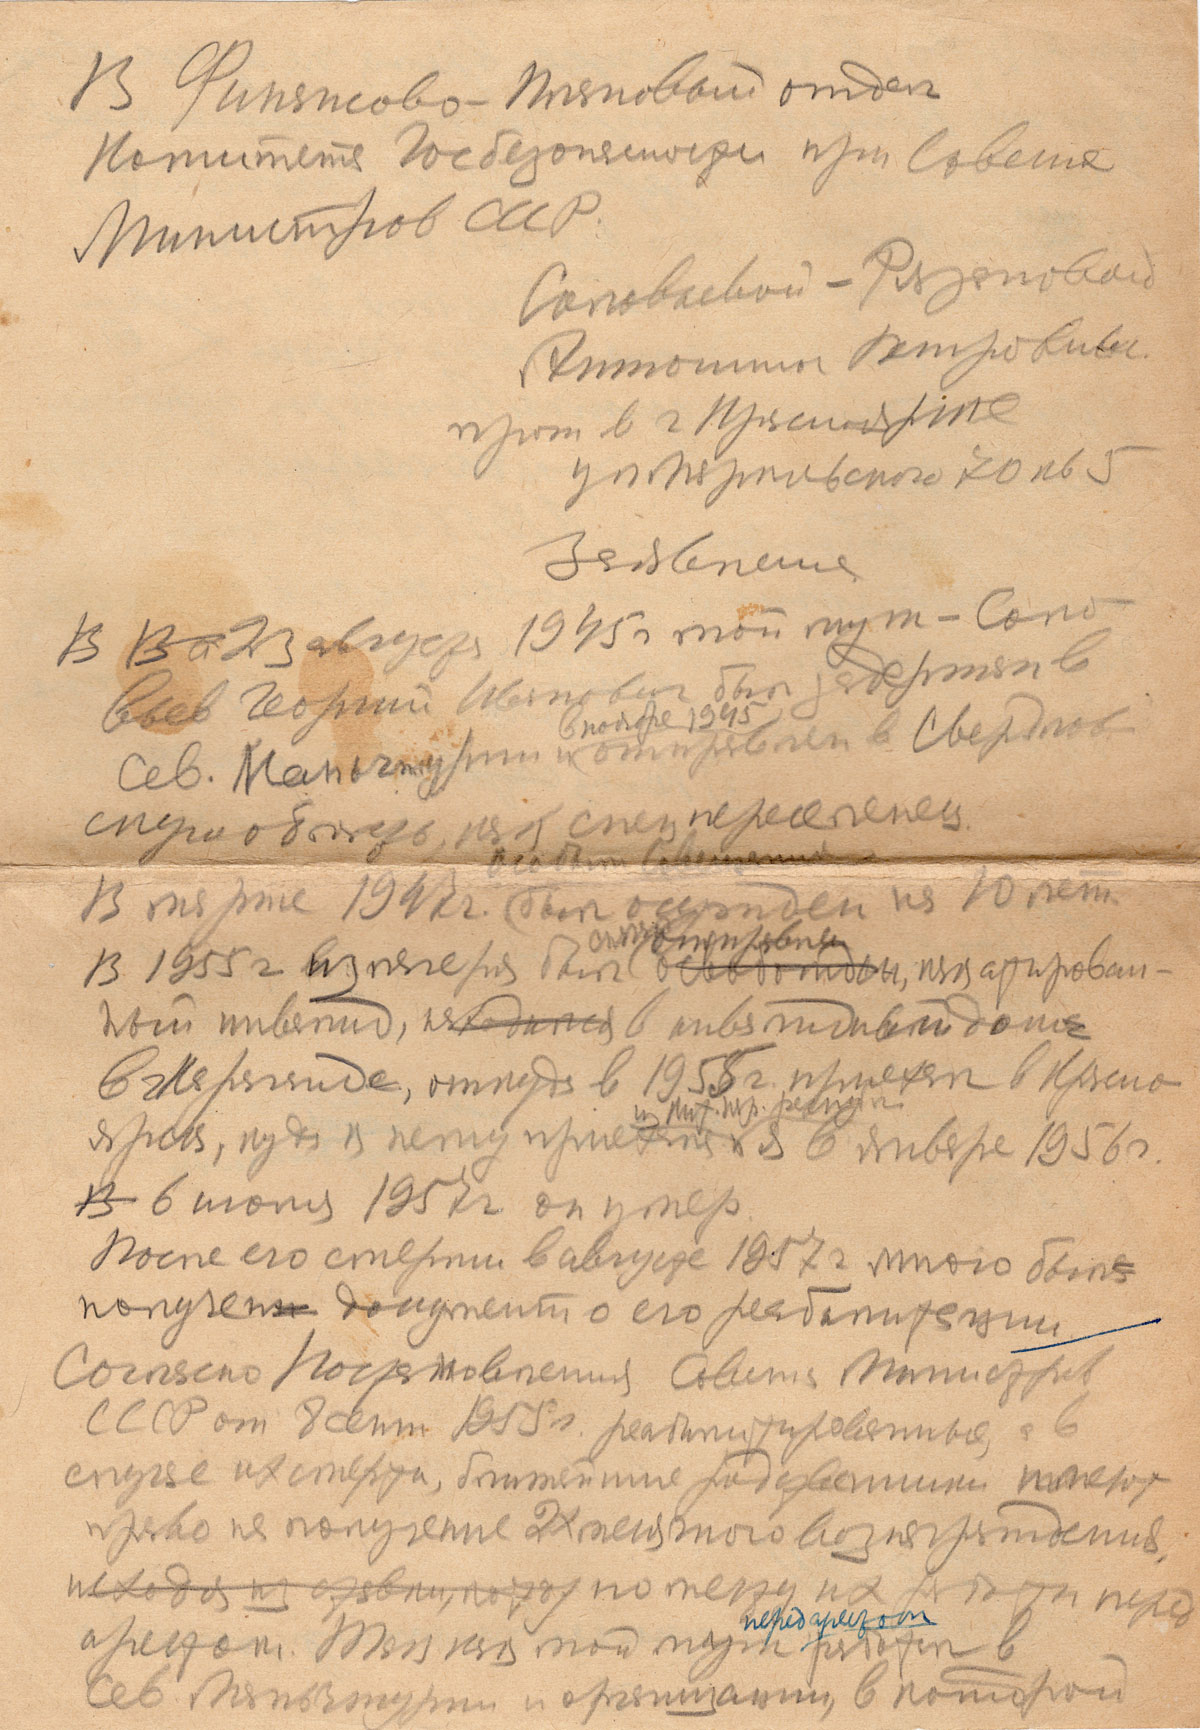 В Финансово-Плановый отдел
Комитета Госбезопасности при Совете
Министров СССР.
Соловьевой-Рязановой
Антонины Петровны.
прож в г Красноярске
ул Марковского 70 кв 5
Заявление
В В а 23 августа 1945 г мой муж - Соло
вьев Георгий Иванович был задержан в
в ноябре 1945
Сев. Маньчжурии и отправлен в Свердлов
скую область, как спецпереселенец.
особым Совещанием
В марте 1947 г. был осужден на 10 лет.
отправлен
В 1955 г из лагеря был освобожден, как актирован-
ный инвалид, находился в инвалидном доме
в г Караганде, откуда в 1955 г. приехал в Красно
ярск, куда к нему приехала и я в январе 1956 г.
В 6 июля 1957 г он умер.
После его смерти в августе 1957 г мною было
получен документ о его реабилитации
Согласно Постановления Совета Министров
СССР от 8 сент 1955 г. реабилитированные, а в
случае их смерти, ближайшие родственники имеют
право на получение 2х месячного вознаграждения,
исходя из по месту их работы перед
перед арестом
арестом. Так как мой муж работал в
Сев. Маньчжурии и организации, в которой